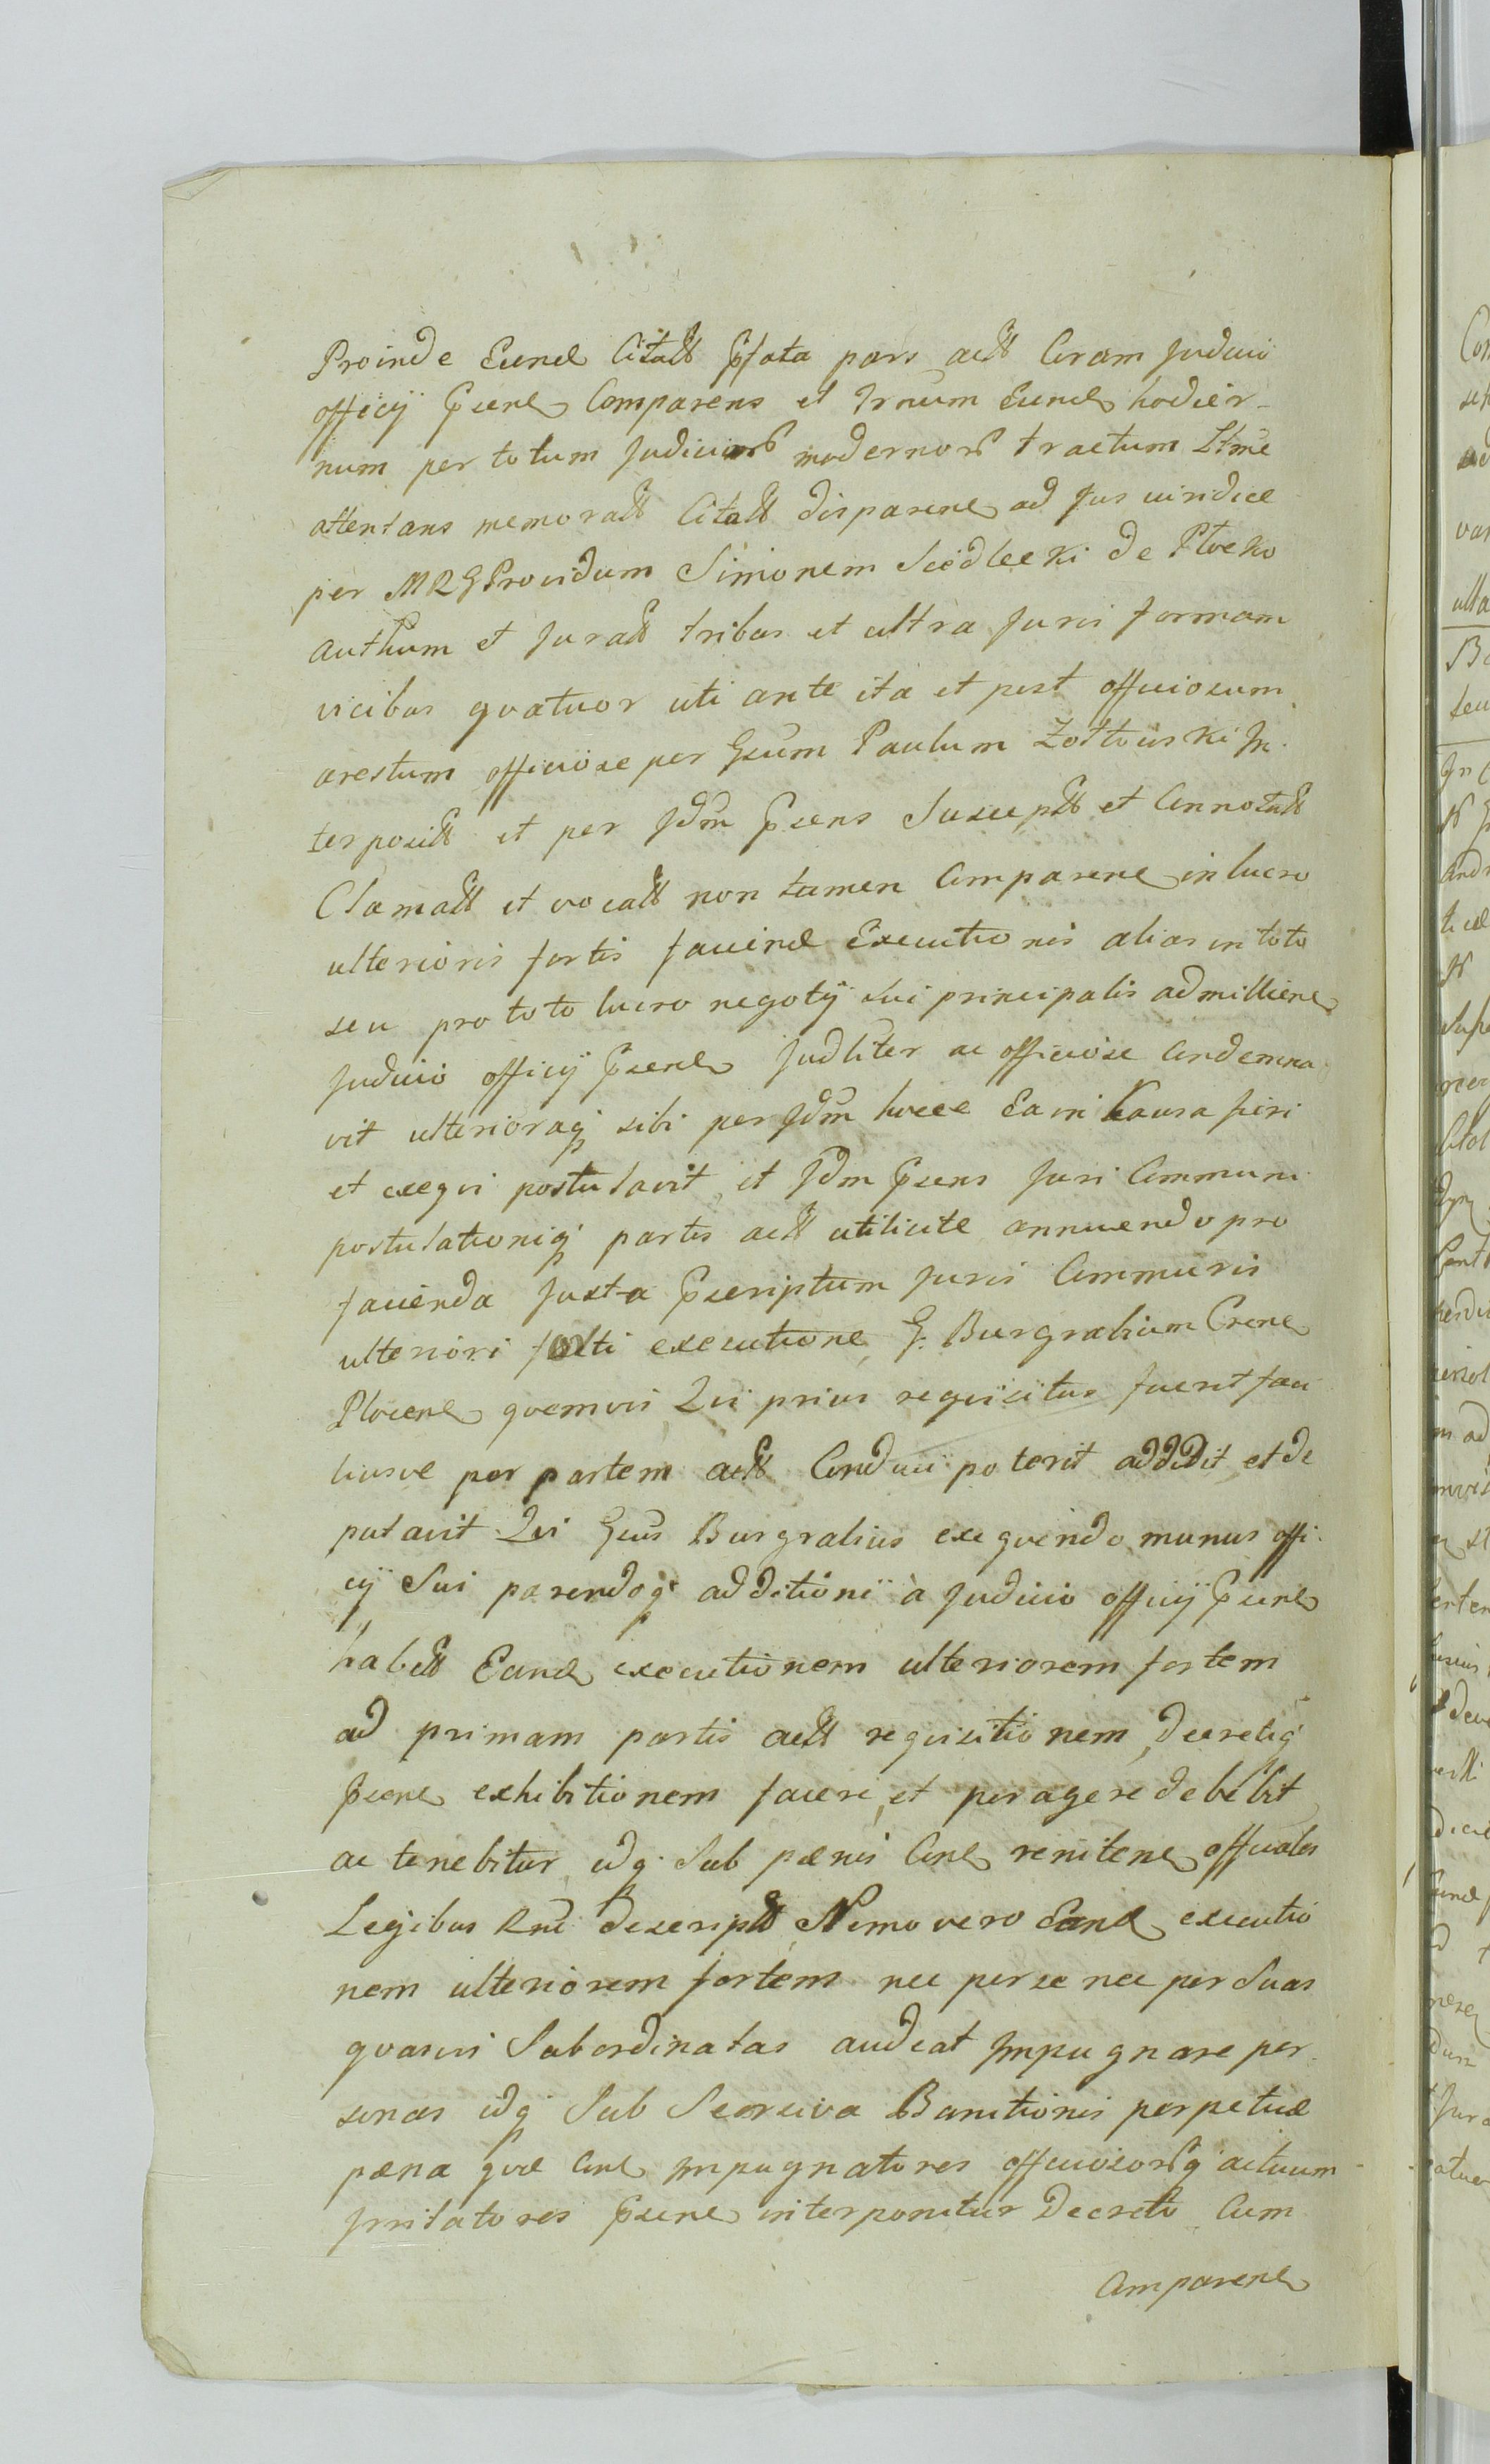 Proinde Eund Citatt Pfata pars act Coram Judicio
officy Psend Comparens et Trnum Eund hodier-
num per totum Judiciors modernors tractum Ltme
attentans memoratt Citatt disparend ad Jus viridice
per MRG Providum Simonem Siedlecki de Plocko
authum et Juratt tribus et ultra Juris formam
vicibus qvatuor uti ante ita et post officiosum
arestum officiose per Gsum Paulum Zołtowski In
terpositt et per Jdm Psens Susceptt et Connotatt
Clamatt et vocatt non tamen Comparend in lucro
ulterioris fortis faciend Executionis alias in toto
seu pro toto lucro negoty sui principalis admittend
Judicio officy Psend Judliter ac officiose Condemna
vit ulterioraq sibi per Jdm hocce Ea in Causa fieri
et exeqvi postulavit et Jdm Psens Juri Communi
postulationiq partis act utilicite annuendo pro
facienda Juxta Pscriptum Juris Communis
ulteriori forti executione G. Burgrabium Crend
Plocend qvemvis Qui prius reqvisitus fuerit faci
liusve per partem act Conduci poterit addidit et de
putavit Qui Gsus Burgrabius exeqvendo munus offi
cy Sui parendoq additioni à Judicio officy Psend
habitt Eand executionem ulteriorem fortem
ad primam partis act reqvisitionem, Decretiq
Psend exhibitionem facere, et peragere debebit
ac tenebitur idq Sub pænis Cond renitend officiales
Legibus Rni descriptt Nemo vero Eand executio
nem ulteriorem fortem nec per se nec per Suas
qvasvis Subordinatas audeat Impugnare per
sonas idq Sub Seorsiva Banitionis perpetuæ
pæna qvæ Cond Impugnatores officiosorsq actuum
Irritatores Psend interponitur Decreto Cum
Comparend